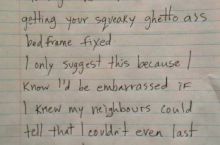 getting your squeaky ghetto ass
bed frame fixed
I only suggest this because I
know I'd be embarrassed if
I knew my neighbours could
tell that I couldn't even last